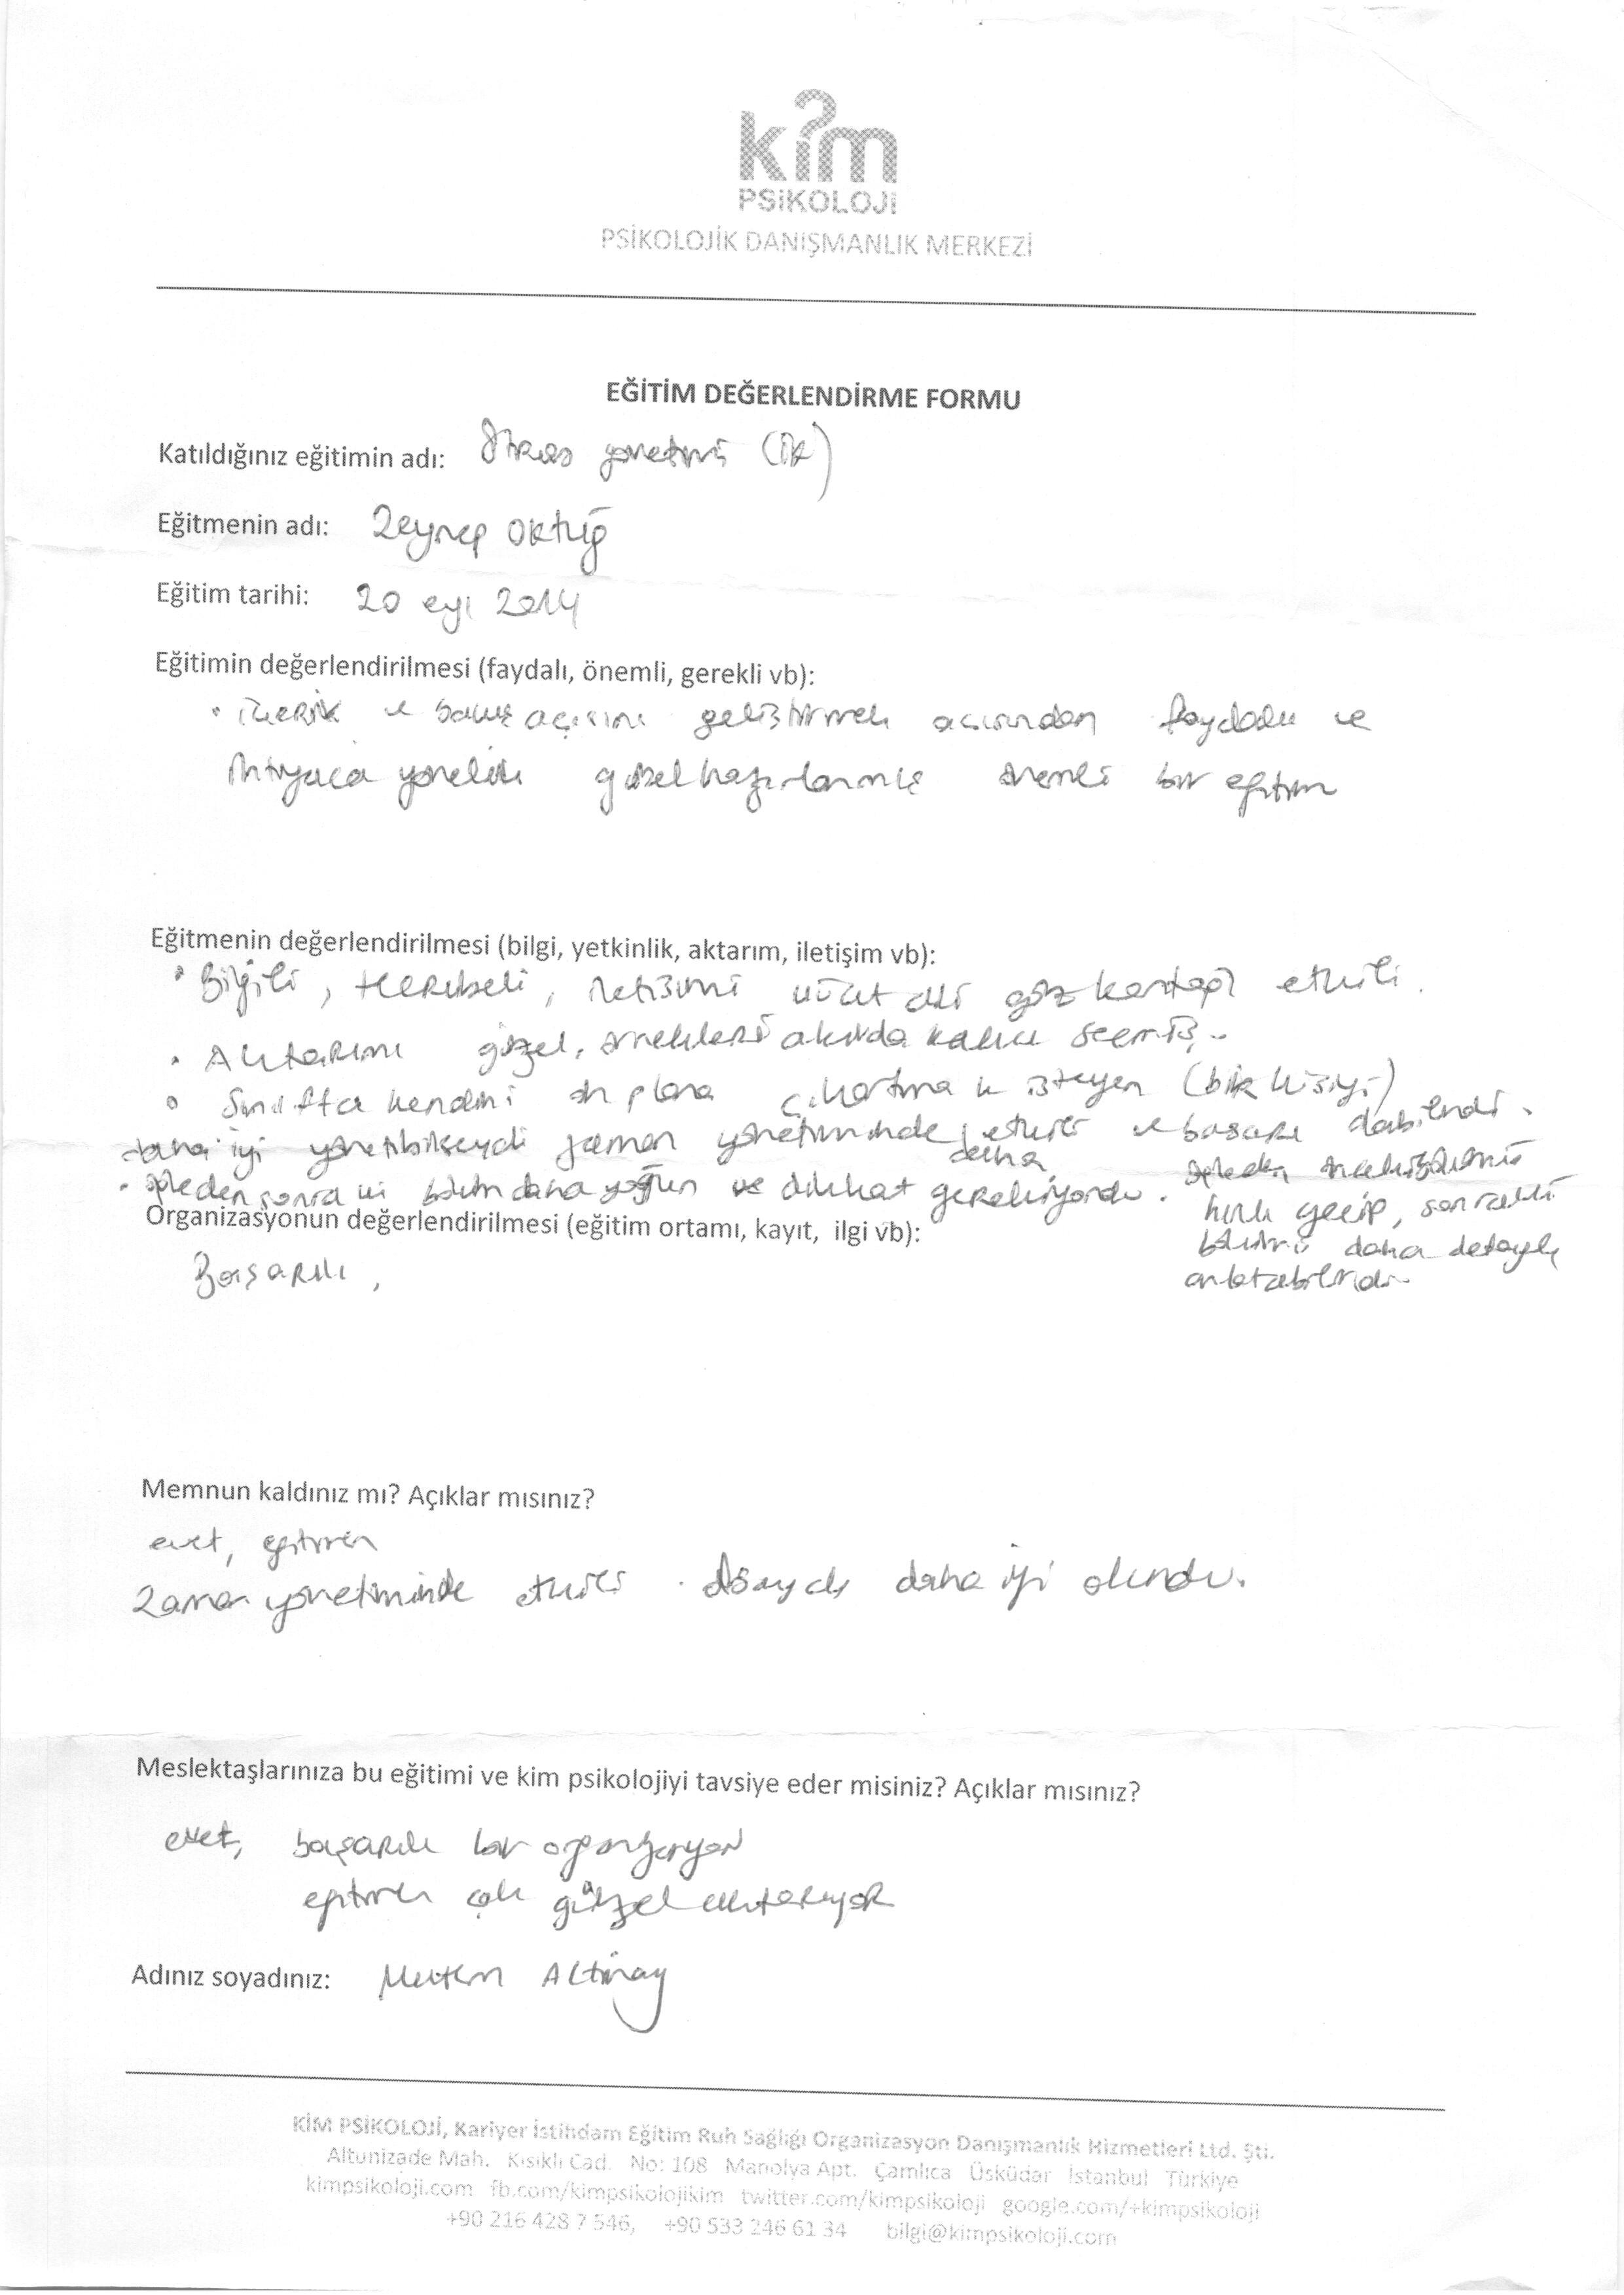 kim
PSİKOLOJİ
PSİKOLOJİK DANIŞMANLIK MERKEZİ
EĞİTİM DEĞERLENDİRME FORMU
Katıldığınız eğitimin adı: Stres yönetimi (İK)
Eğitmenin adı: Zeynep Oktuğ
Eğitim tarihi: 20 eyl 2014
Eğitimin değerlendirilmesi (faydalı, önemli, gerekli vb):
• İçerik ve bakış açısını geliştirmek açısından faydalı ve
ihtiyaca yönelik güzel hazırlanmış önemli bir eğitim
Eğitmenin değerlendirilmesi (bilgi, yetkinlik, aktarım, iletişim vb):
• Bilgili, tecrübeli, iletişimi vücut dili göz kontağı etkili.
• Aktarımı güzel, örnekleri akılda kalıcı seçmiş..
• Sınıfta kendini ön plana çıkartmak isteyen (bir kişiyi)
daha iyi yönetebilseydi zaman yönetiminde daha etkili ve başarılı olabilirdi.
• öğleden sonraki bölüm daha yoğun ve dikkat gerekiyordu. öğleden önceki bölümü
hızlı geçip, sonraki
bölümü daha detaylı
anlatabilirdi.
Organizasyonun değerlendirilmesi (eğitim ortamı, kayıt, ilgi vb):
Başarılı,
Memnun kaldınız mı? Açıklar mısınız?
evet, eğitmen
Zaman yönetiminde etkili olsaydı daha iyi olurdu.
Meslektaşlarınıza bu eğitimi ve kim psikolojiyi tavsiye eder misiniz? Açıklar mısınız?
evet, başarılı bir organizasyon
eğitmen çok güzel aktarıyor
Adınız soyadınız: Meltem Altınay
KİM PSİKOLOJİ, Kariyer İstihdam Eğitim Ruh Sağlığı Organizasyon Danışmanlık Hizmetleri Ltd. Şti.
Altunizade Mah. Kısıklı Cad. No: 108 Manolya Apt. Çamlıca Üsküdar İstanbul Türkiye
kimpsikoloji.com fb.com/kimpsikolojikim twitter.com/kimpsikoloji google.com/+kimpsikoloji
+90 216 428 7 546, +90 533 246 61 34 bilgi@kimpsikoloji.com